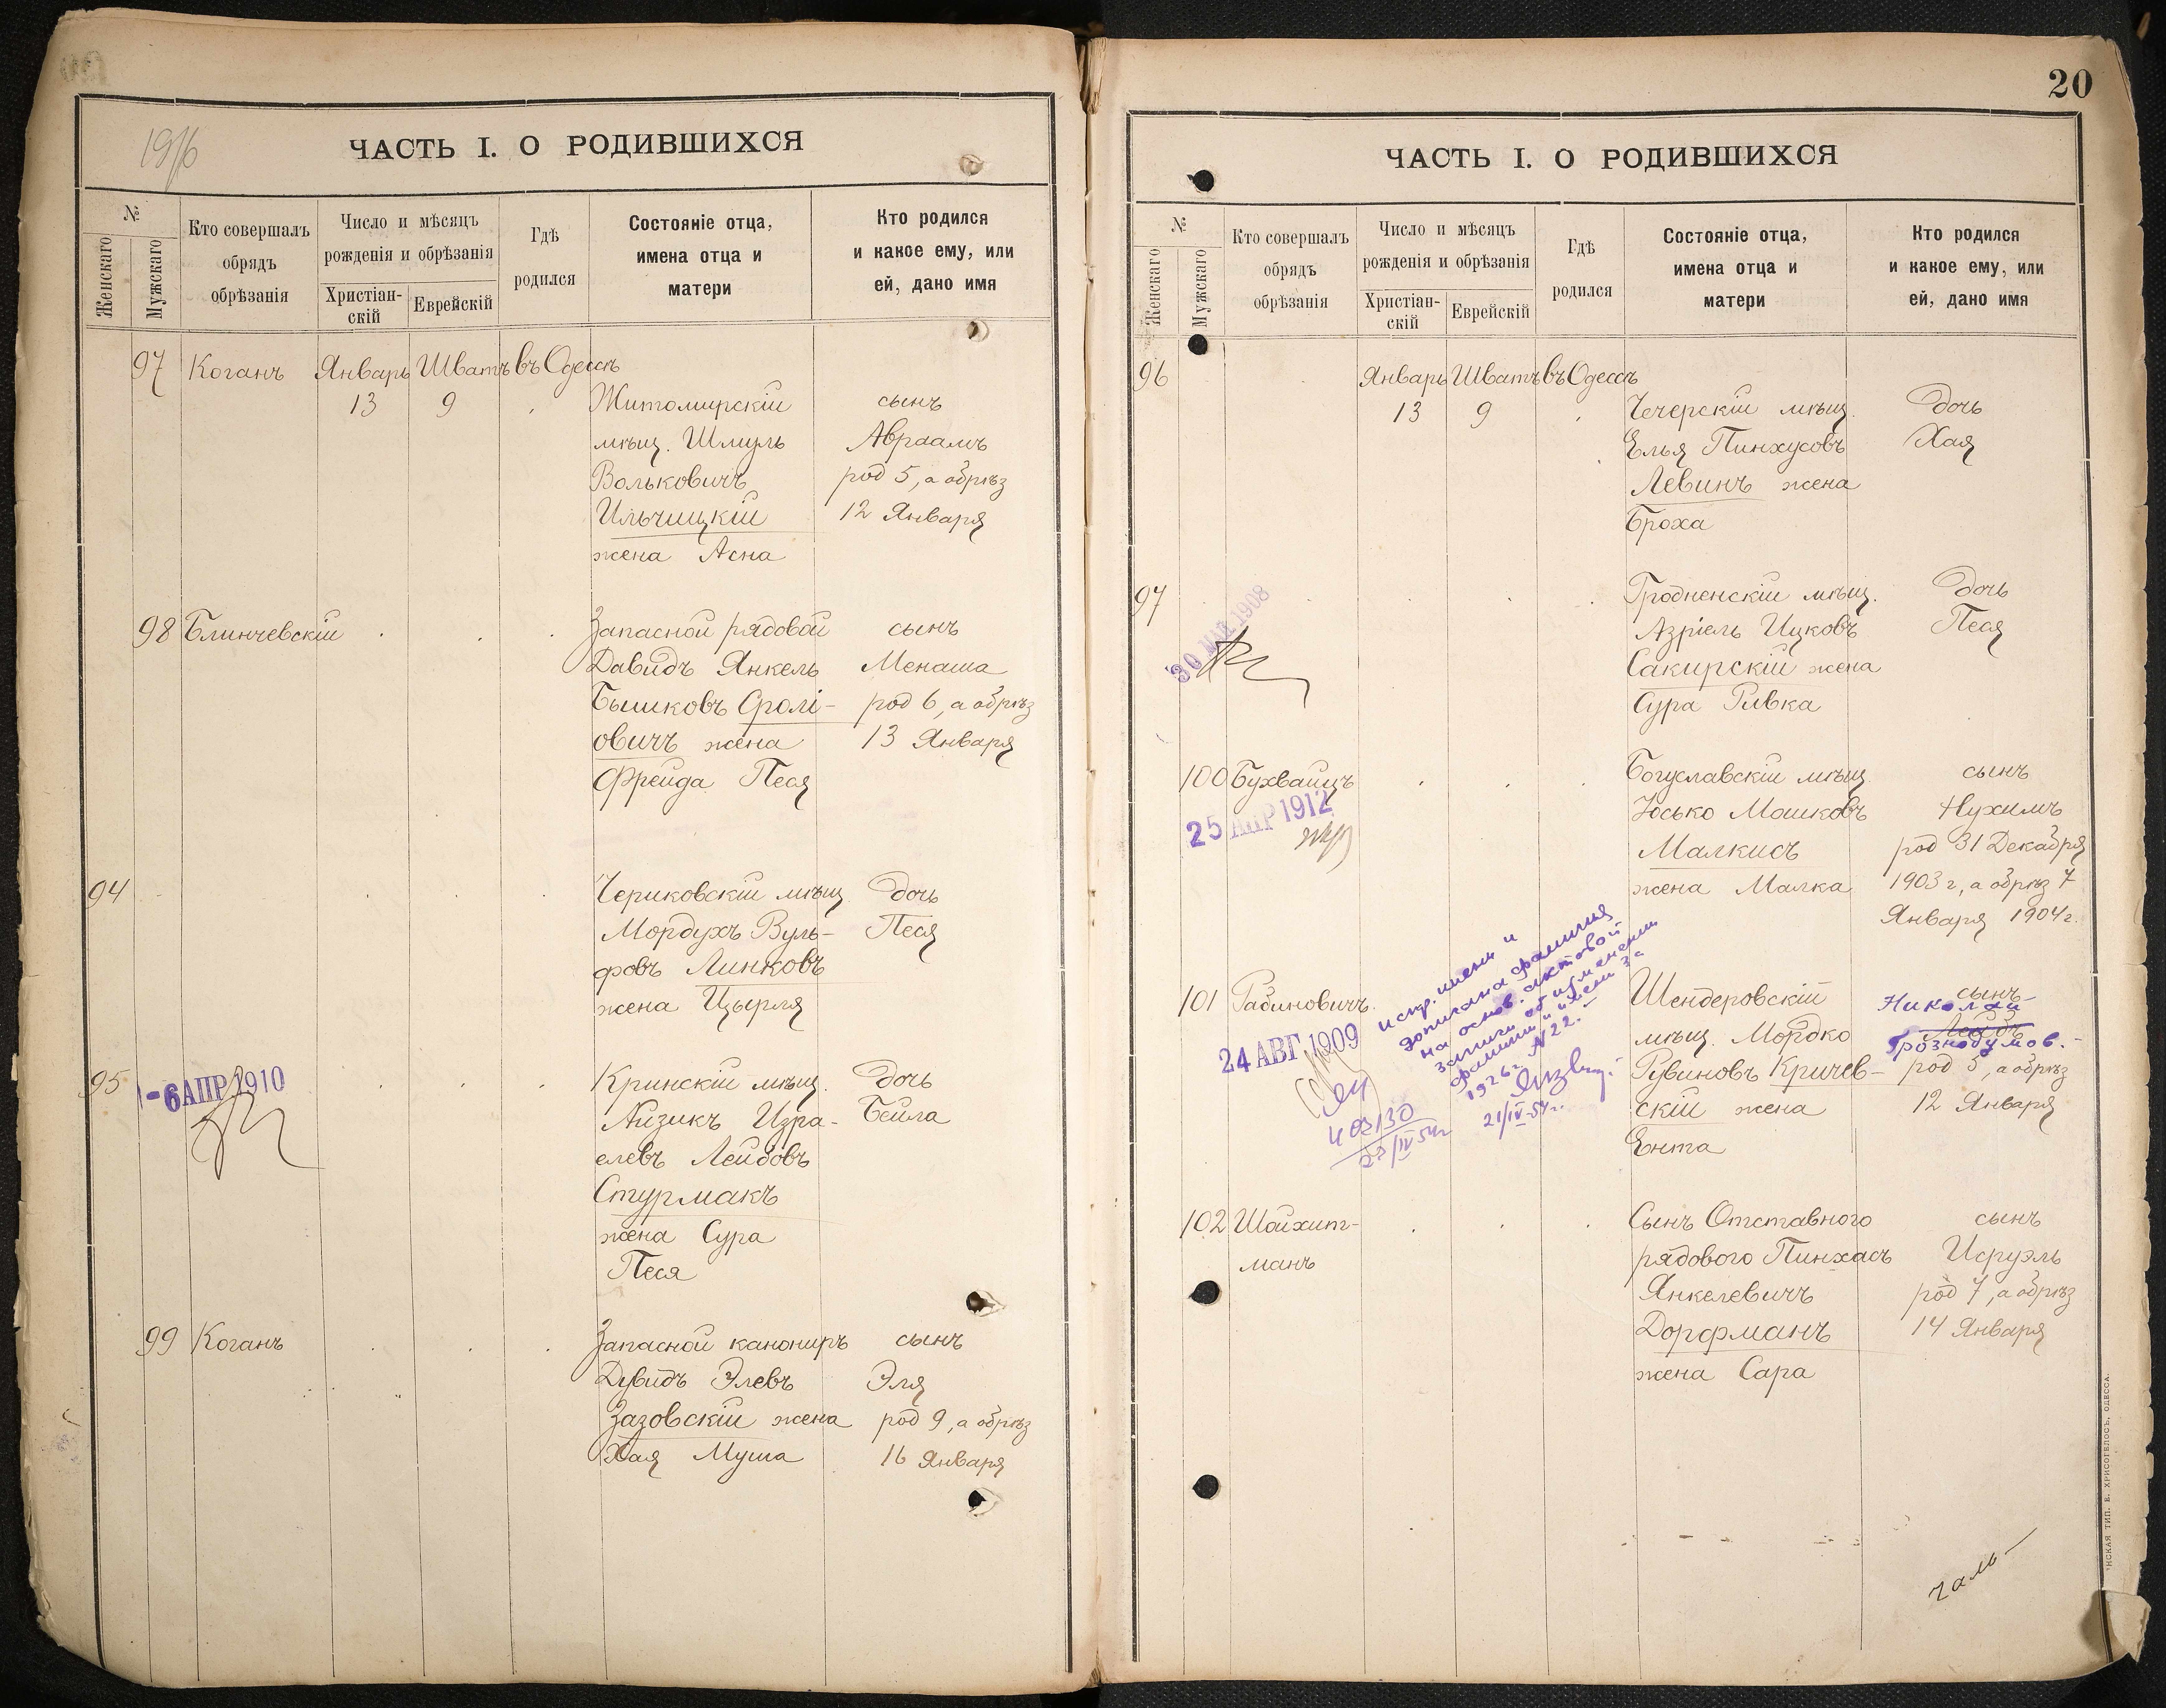 19/6
ЧАСТЬ I. О РОДИВШИХСЯ
№
Женскаго
Мужскаго
Кто совершалъ
обрядъ
обрѣзанія
Число и мѣсяцъ
рожденія и обрѣзанія
Христіан-
скій
Еврейскій
Гдѣ
родился
Состояніе отца,
имена отца и
матери
Кто родился
и какое ему, или
ей, дано имя
97 Коганъ Январь Шватъ въ Одессѣ
13 9 Житомирскій сынъ
мѣщ. Шмуль Авраамъ
Вольковичъ род 5, а обрѣз
Ильчицкій 12 Января
жена Асна
98 Блинчевскій Запасной рядовой сынъ
Давидъ Янкель Менаша
Бышковъ Сролі- род 6, а обрѣз
овичъ жена 13 Января
Фрейда Песя
94 Чериковскій мѣщ дочь
Мордухъ Вуль- Песя
фовъ Линковъ
жена Цырля
95 -6 АПР 1910 Кринскій мѣщ. дочь
Айзикъ Изра- Бейла
елевъ Лейбовъ
Стурмакъ
жена Сура
Песя
99 Коганъ Запасной канониръ сынъ
Дувидъ Элевъ Эля
Зазовскій жена род 9, а обрѣз
Хая Муша 16 Января
20
ЧАСТЬ I. О РОДИВШИХСЯ
№
Женскаго
Мужскаго
Кто совершалъ
обрядъ
обрѣзанія
Число и мѣсяцъ
рожденія и обрѣзанія
Христіан-
скій
Еврейскій
Гдѣ
родился
Состояніе отца,
имена отца и
матери
Кто родился
и какое ему, или
ей, дано имя
96 Январь Шватъ въ Одессѣ
13 9 Чечерскій мѣщ. дочь
Елья Пинхусовъ Хая
Левинъ жена
Броха
97 Гродненскій мѣщ. дочь
30 МАЙ 1908 Азріель Ицковъ Песя
Сакирскій жена
Сура Ривка
100 Бухвайцъ Богуславскій мѣщ сынъ
25 АПР 1912 Юсько Мошковъ Нухимъ
Малкисъ род 31 Декабря
жена Малка 1903 г, а обрѣз 7
Января 1904 г.
101 Рабиновичъ Шендеровскій сынъ
Николай
мѣщ. Мордко Лейбъ
Грознодумов.
Рувиновъ Кричев- род 5, а обрѣз
скій жена 12 Января
Ента
24 АВГ 1909
испр. имени и
дописана фамилия
на основ. актовой
записи об изменении
фамилии и имени за
1926 г. N 22.-
21/IV-54 г.
403130
23/IV 54 г
102 Шойхит- Сынъ Отставного сынъ
манъ рядового Пинхасъ Исруэль
Янкелевичъ род 7, а обрѣз
Дорфманъ 14 Января
жена Сара
НСКАЯ ТИП. Е. ХРИСОГЕЛОСЪ, ОДЕССА.